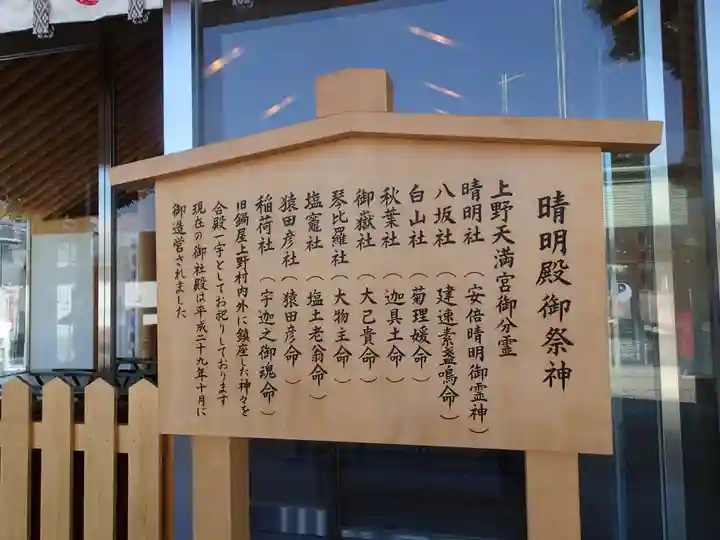 晴明殿御祭神
上野天満宮御分霊
晴明社（安倍晴明御霊神）
八坂社（建速素盞鳴命）
白山社（菊理媛命）
秋葉社（迦具土命）
御嶽社（大己貴命）
琴比羅社（大物主命）
塩竈社（塩土老翁命）
猿田彦社（猿田彦命）
稲荷社（宇迦之御魂命）
旧鍋屋上野村内外に鎮座した神々を
合殿一宇としてお祀りしております
現在の御社殿は平成二十九年十月に
御造営されました